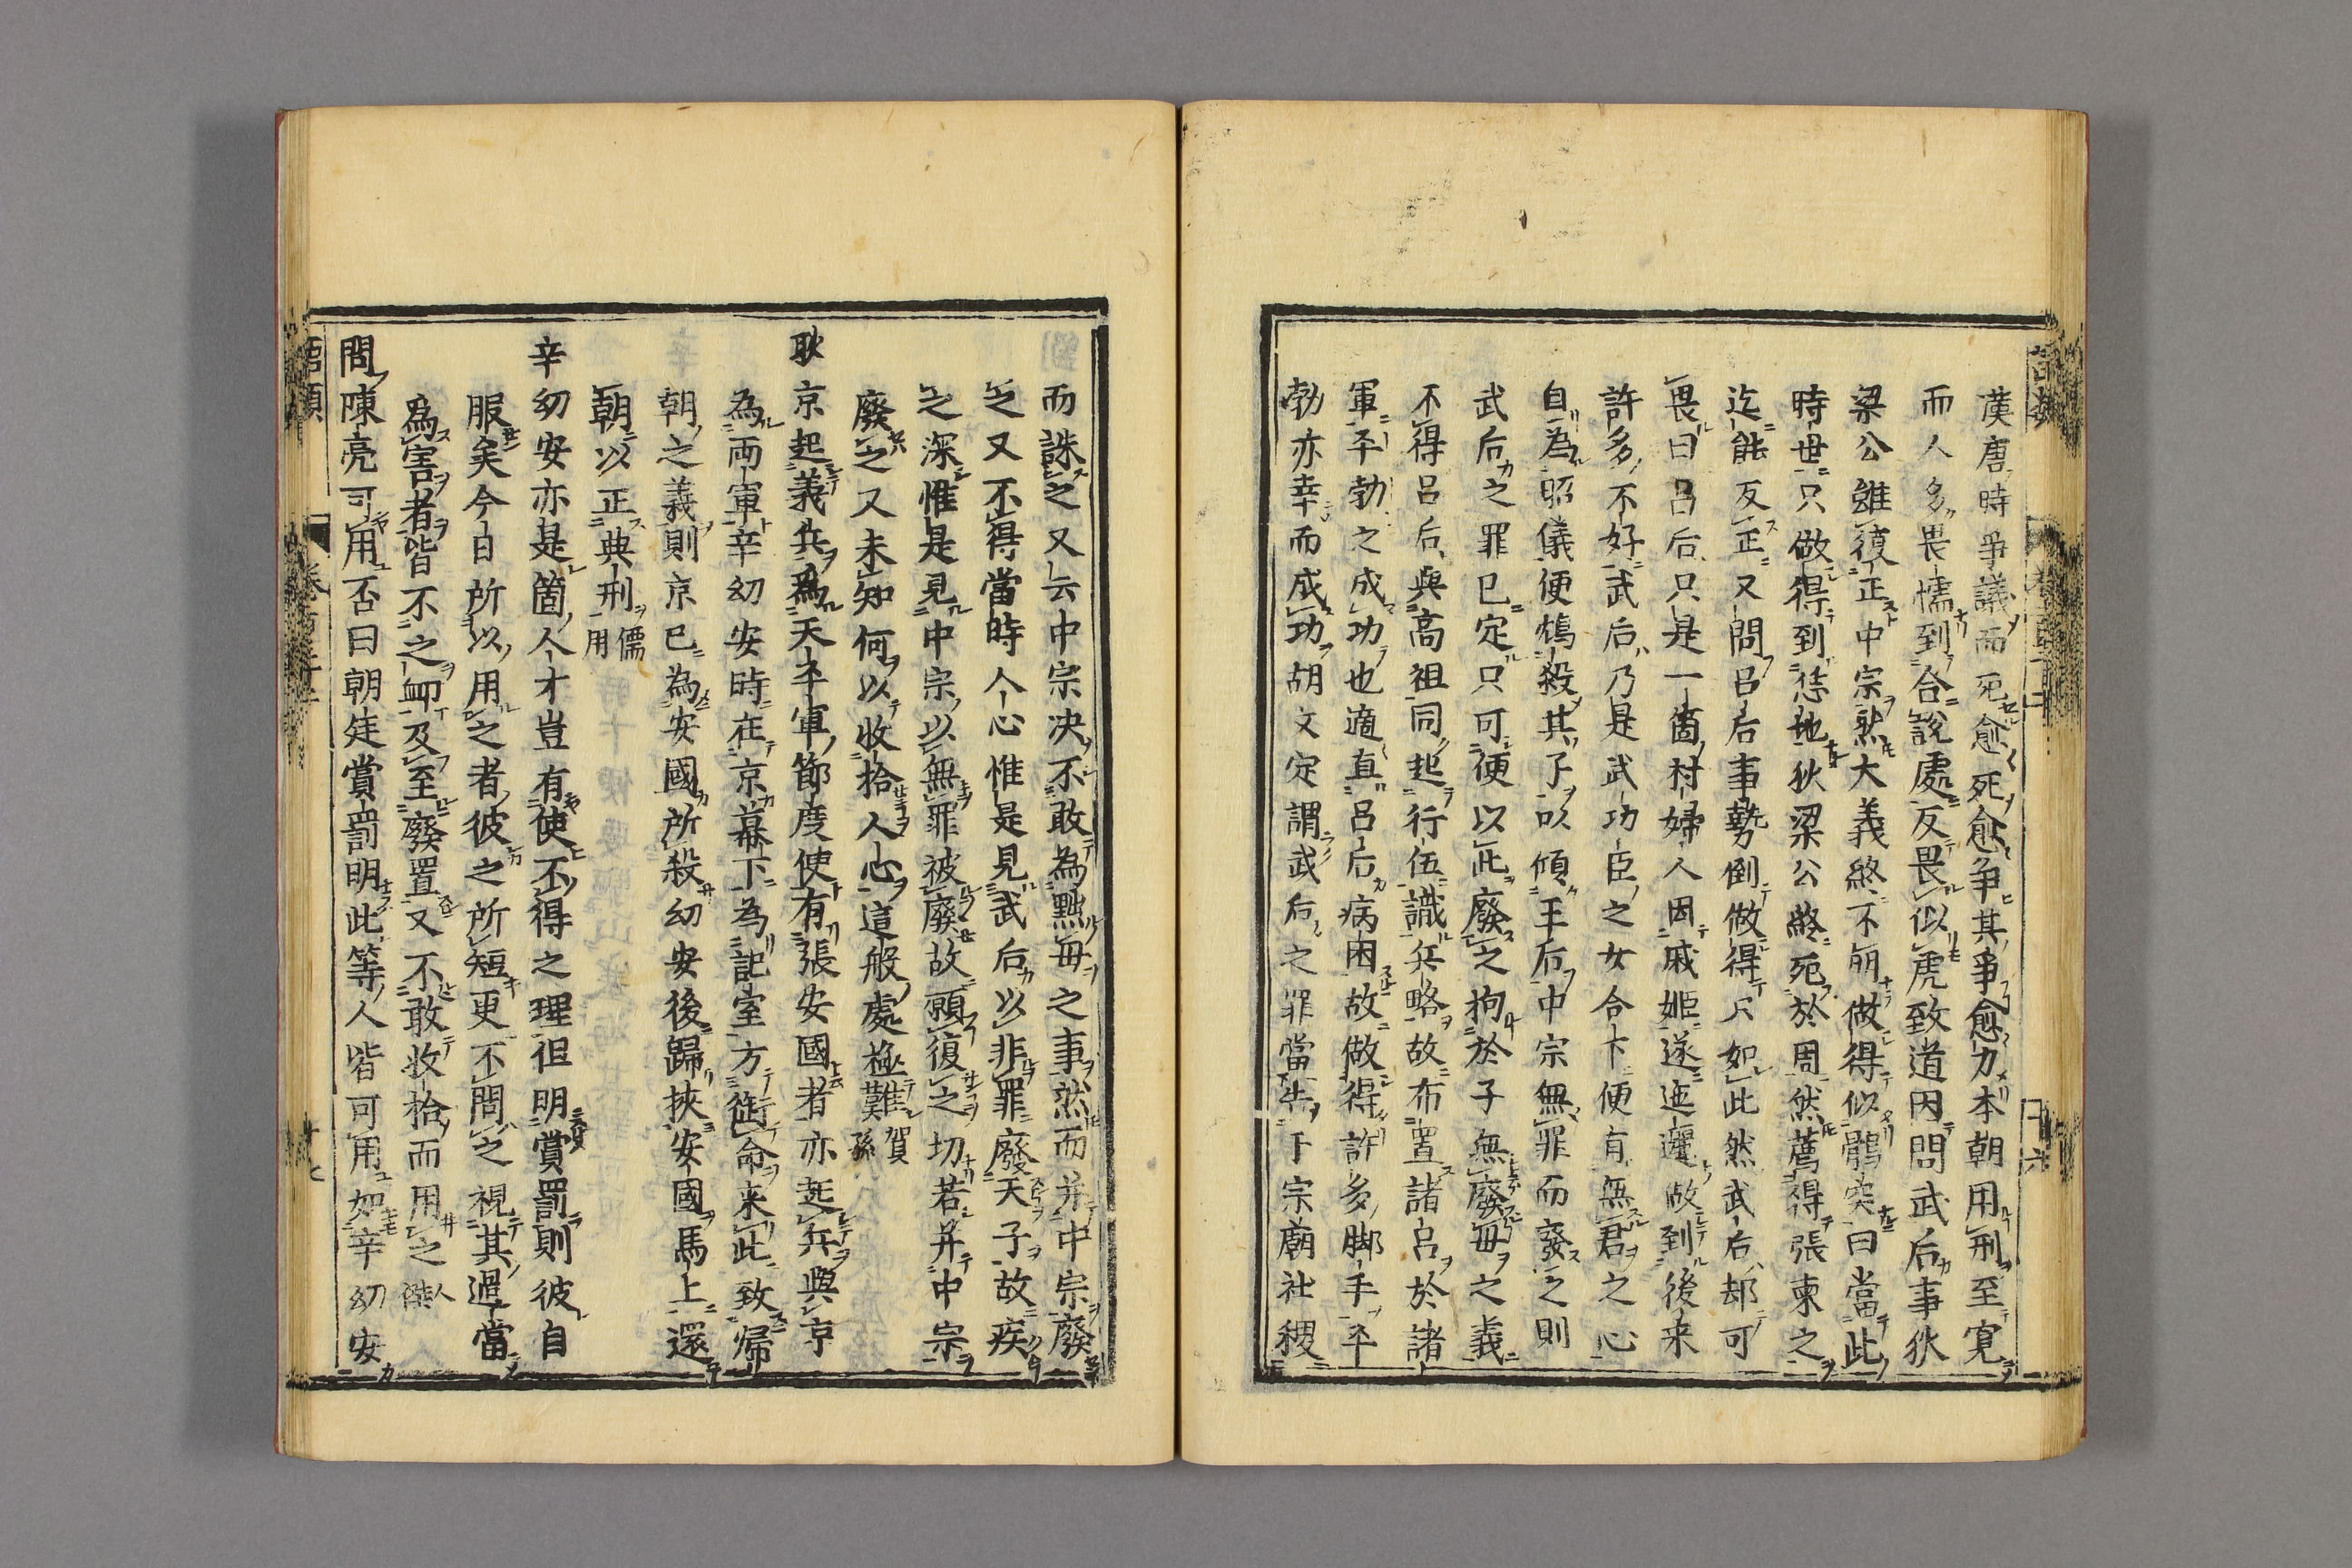 漢唐時爭議而死愈死愈争其爭愈力本朝用刑至寛
而人多畏懦到合説處反畏似虎致道因問武后事狄
梁公雖復正中宗然大義終不明做得似鶻突曰當此
時世只做得到恁地狄梁公終死於周然薦得張柬之
迄能反正又問呂后事勢倒做得只如此然武后却可
畏曰呂后只是一箇村婦人因戚姫遂迤邐做到後来
許多不好武后乃是武功臣之女合下便有無君之心
自為昭儀便鴆殺其子以傾王后中宗無罪而廢之則
武后之罪已定只可便以此廢之拘於子無廢毎之義
不得呂后與高祖同起行伍識兵略故布置諸呂於諸
軍平勃之成功也適直呂后病困故做得許多脚手平
勃亦幸而成功胡文定謂武后之罪當告于宗廟社稷
而誅之又云中宗决不敢為黜毎之事然而并中宗廢
之又不得當時人心惟是見武后以非罪廢天子故疾
之深惟是見中宗以無罪被廢故願復之切若并中宗
廢之又未知何以收拾人心這般處極難賀孫
耿京起義兵為天平軍節度使有張安國者亦起兵與京
為両軍辛幼安時在京幕下為記室方銜命来此致歸
朝之義則京已為安國所殺幼安後歸挾安國馬上還
朝以正典刑儒用
辛幼安亦是箇人才豈有使不得之理但明賞罰則彼自
服矣今日所以用之者彼之所短更不問之視其過當
為害者皆不之卹及至廢置又不敢收拾而用之人傑
問陳亮可用否曰朝廷賞罰明此等人皆可用如辛幼安
語類
十七